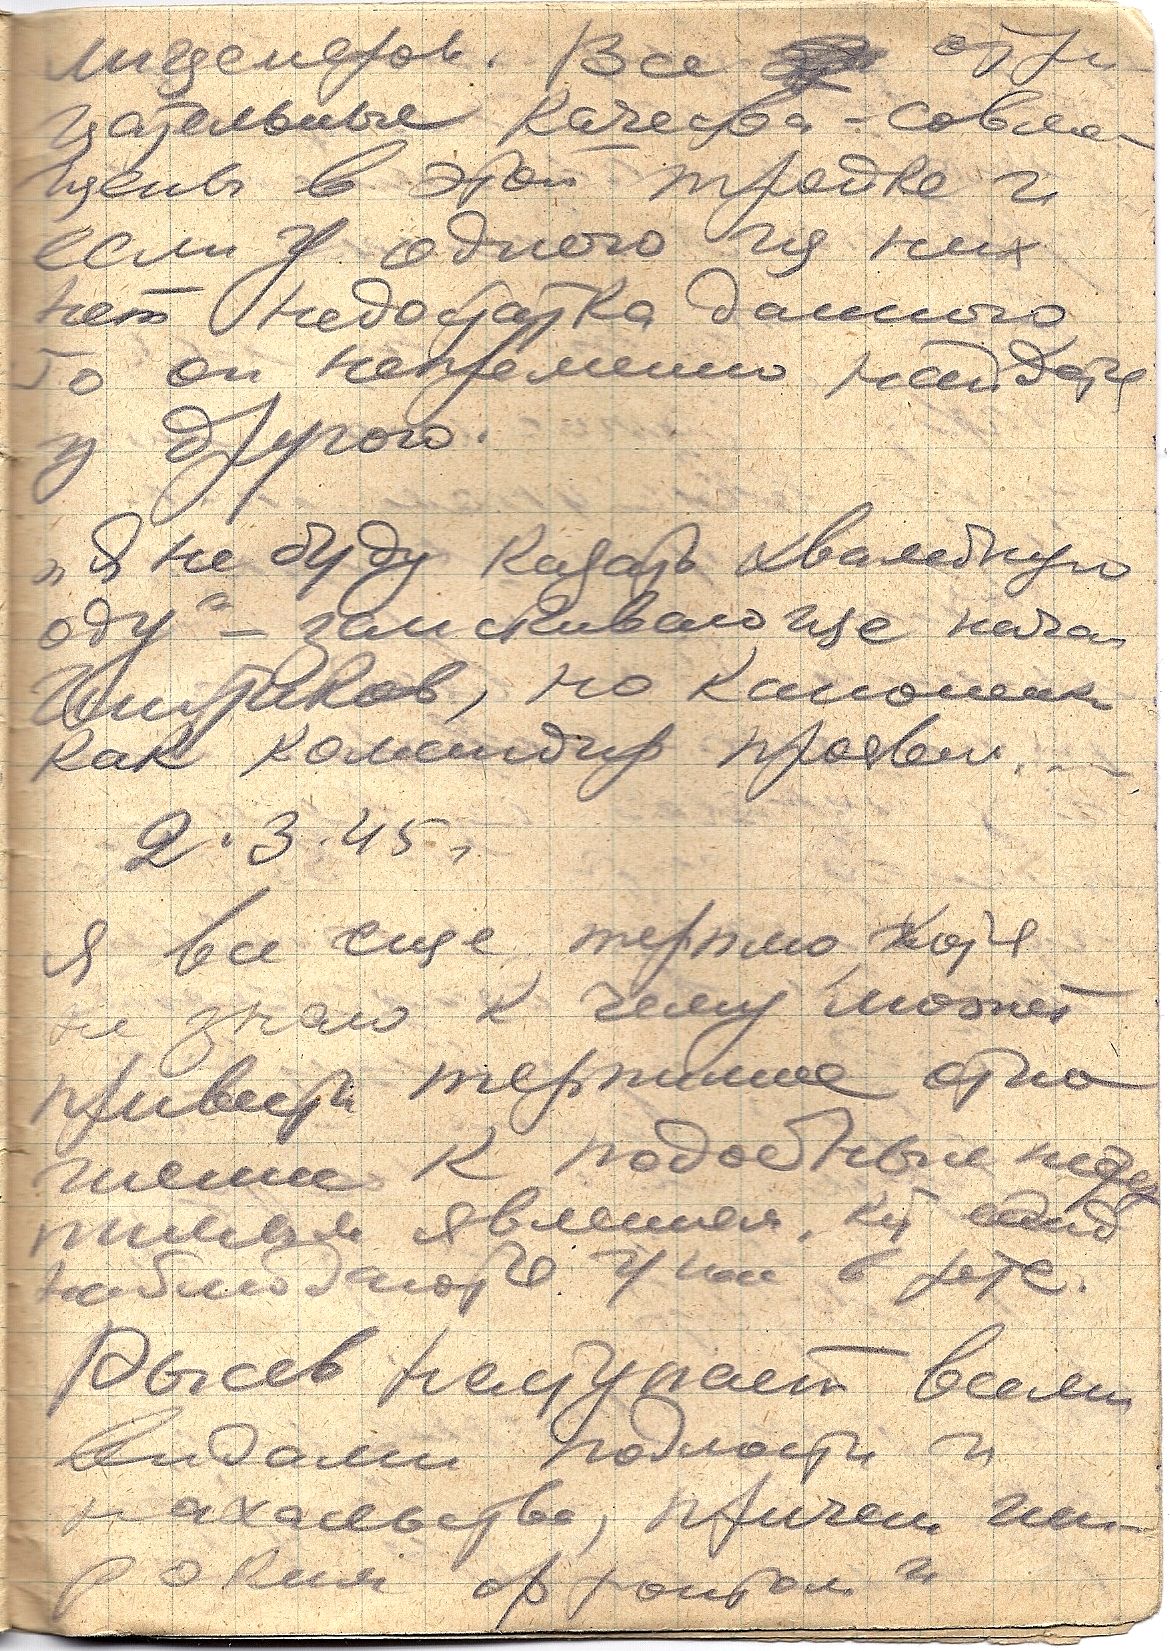 лицемеров. Все отри
цательные качества - совме-
щены в этой тройке и
если у одного из них
нет недостатка данного
то он непременно найдется
у другого.
„Я не буду казать хвалебную
оду" - заискивающе начал
но Каноненко
как командир проявил...
2.3.45.
Я все еще терплю, хотя
не знаю к чему может
привести терпимое отно
шение к подобным недоп
тимым явлениям,
наблюдаются у нас в роте.
Рысев наступает всеми
видами подлости и
нахальства, причем ши-
роким фронтом и